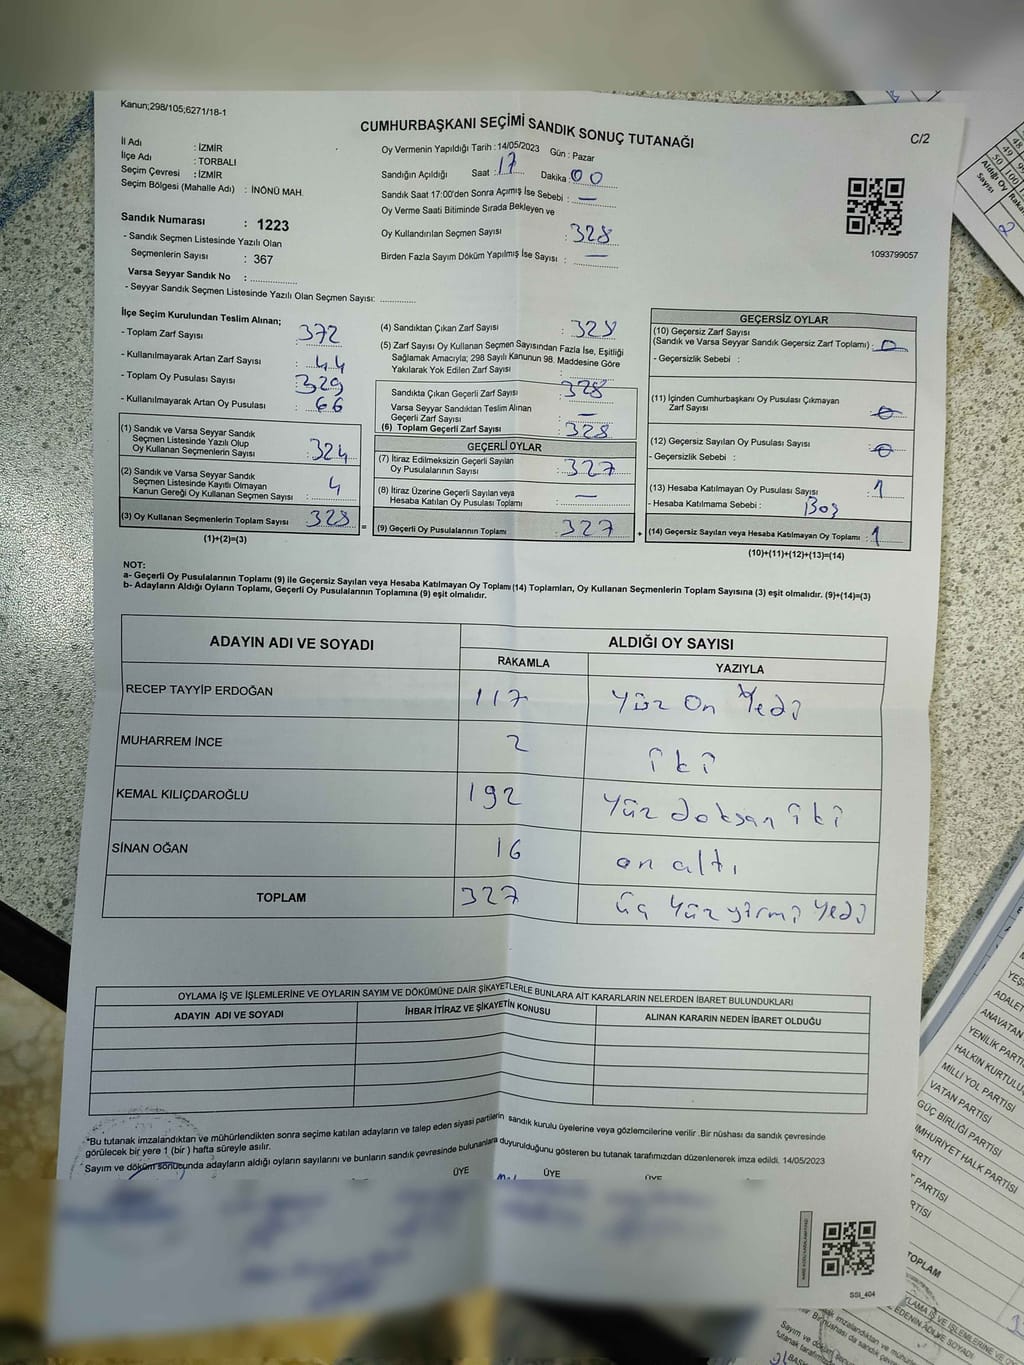 Kanun;298/105;6271/18-1
CUMHURBAŞKANI SEÇİMİ SANDIK SONUÇ TUTANAĞI
C/2
İl Adı : İZMİR
İlçe Adı : TORBALI
Seçim Çevresi : İZMİR
Seçim Bölgesi (Mahalle Adı) : İNÖNÜ MAH.
Sandık Numarası : 1223
- Sandık Seçmen Listesinde Yazılı Olan
Seçmenlerin Sayısı : 367
Varsa Seyyar Sandık No :
- Seyyar Sandık Seçmen Listesinde Yazılı Olan Seçmen Sayısı:
Oy Vermenin Yapıldığı Tarih : 14/05/2023 Gün : Pazar
Sandığın Açıldığı Saat : 17 Dakika : 00
Sandık Saat 17:00'den Sonra Açımış İse Sebebi : —
Oy Verme Saati Bitiminde Sırada Bekleyen ve
Oy Kullandırılan Seçmen Sayısı : 328
Birden Fazla Sayım Döküm Yapılmış İse Sayısı : —
1093799057
İlçe Seçim Kurulundan Teslim Alınan;
- Toplam Zarf Sayısı : 372
- Kullanılmayarak Artan Zarf Sayısı : 44
- Toplam Oy Pusulası Sayısı : 329
- Kullanılmayarak Artan Oy Pusulası : 66
(1) Sandık ve Varsa Seyyar Sandık
Seçmen Listesinde Yazılı Olup
Oy Kullanan Seçmenlerin Sayısı : 324
(2) Sandık ve Varsa Seyyar Sandık
Seçmen Listesinde Kayıtlı Olmayan
Kanun Gereği Oy Kullanan Seçmen Sayısı : 4
(3) Oy Kullanan Seçmenlerin Toplam Sayısı 328
(1)+(2)=(3)
(4) Sandıktan Çıkan Zarf Sayısı : 328
(5) Zarf Sayısı Oy Kullanan Seçmen Sayısından Fazla İse, Eşitliği
Sağlamak Amacıyla; 298 Sayılı Kanunun 98. Maddesine Göre
Yakılarak Yok Edilen Zarf Sayısı :
Sandıkta Çıkan Geçerli Zarf Sayısı : 328
Varsa Seyyar Sandıktan Teslim Alınan
Geçerli Zarf Sayısı : —
(6) Toplam Geçerli Zarf Sayısı : 328
GEÇERLİ OYLAR
(7) İtiraz Edilmeksizin Geçerli Sayılan
Oy Pusulalarının Sayısı : 327
(8) İtiraz Üzerine Geçerli Sayılan veya
Hesaba Katılan Oy Pusulası Toplamı : —
= (9) Geçerli Oy Pusulalarının Toplamı : 327 +
GEÇERSİZ OYLAR
(10) Geçersiz Zarf Sayısı
(Sandık ve Varsa Seyyar Sandık Geçersiz Zarf Toplamı) : 0
- Geçersizlik Sebebi :
(11) İçinden Cumhurbaşkanı Oy Pusulası Çıkmayan
Zarf Sayısı : 0
(12) Geçersiz Sayılan Oy Pusulası Sayısı : 0
- Geçersizlik Sebebi :
(13) Hesaba Katılmayan Oy Pusulası Sayısı : 1
- Hesaba Katılmama Sebebi : Boş
(14) Geçersiz Sayılan veya Hesaba Katılmayan Oy Toplamı : 1
(10)+(11)+(12)+(13)=(14)
NOT:
a- Geçerli Oy Pusulalarının Toplamı (9) ile Geçersiz Sayılan veya Hesaba Katılmayan Oy Toplam (14) Toplamları, Oy Kullanan Seçmenlerin Toplam Sayısına (3) eşit olmalıdır. (9)+(14)=(3)
b- Adayların Aldığı Oyların Toplamı, Geçerli Oy Pusulalarının Toplamına (9) eşit olmalıdır.
ADAYIN ADI VE SOYADI
ALDIĞI OY SAYISI
RAKAMLA YAZIYLA
RECEP TAYYİP ERDOĞAN 117 Yüz On Yedi
MUHARREM İNCE 2 iki
KEMAL KILIÇDAROĞLU 192 Yüz doksan iki
SİNAN OĞAN 16 on altı
TOPLAM 327 üç Yüz yirmi Yedi
OYLAMA İŞ VE İŞLEMLERİNE VE OYLARIN SAYIM VE DÖKÜMÜNE DAİR ŞİKAYETLERLE BUNLARA AİT KARARLARIN NELERDEN İBARET BULUNDUKLARI
ADAYIN ADI VE SOYADI
İHBAR İTİRAZ VE ŞİKAYETİN KONUSU
ALINAN KARARIN NEDEN İBARET OLDUĞU
*Bu tutanak imzalandıktan ve mühürlendikten sonra seçime katılan adayların ve talep eden siyasi partilerin sandık kurulu üyelerine veya gözlemcilerine verilir .Bir nüshası da sandık çevresinde
görülecek bir yere 1 (bir ) hafta süreyle asılır.
Sayım ve döküm sonucunda adayların aldığı oyların sayılarını ve bunların sandık çevresinde bulunanlara duyurulduğunu gösteren bu tutanak tarafımızdan düzenlenerek imza edildi. 14/05/2023
ÜYE ÜYE ÜYE
SSİ_404
Aldığı Oy
Sayısı
48
49
50
100
2
ADALET
ANAVATAN
YENİLİK PARTİ
HALKIN KURTULU
MİLLİ YOL PARTİSİ
VATAN PARTİSİ
GÜÇ BİRLİĞİ PARTİSİ
MHURİYET HALK PARTİSİ
ARTİ
PARTİSİ
RTİSİ
TOPLAM